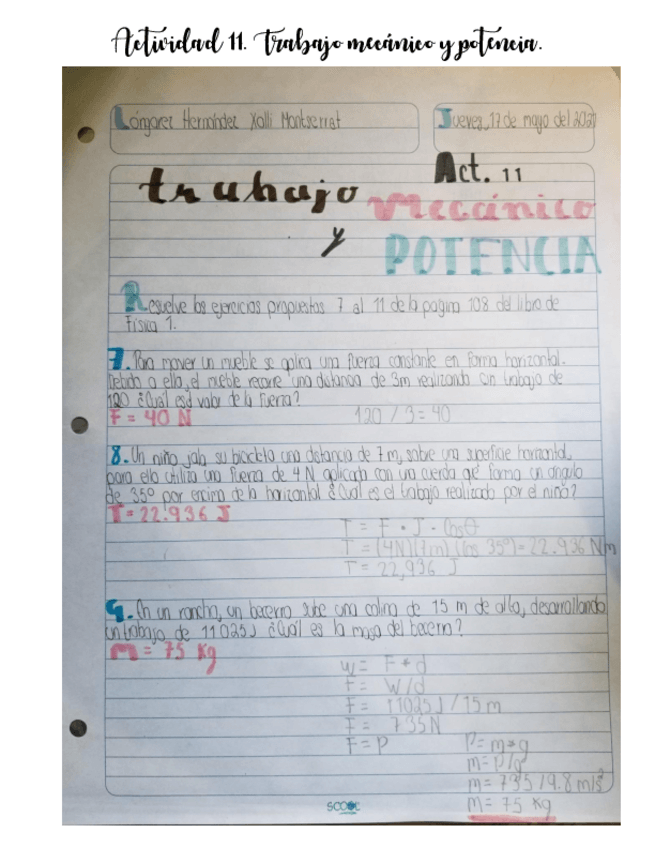 Actividad 11. Trabajo mecánico y potencia.
Lóngarez Hernández Xalli Montserrat
Jueves, 17 de mayo del 2021
Act. 11
trabajo
mecánico
y
POTENCIA
Resuelve los ejercicios propuestos 7 al 11 de la pagina 108 del libro de
Física 1.
7. Para mover un mueble se aplica una fuerza constante en forma horizontal.
Debido a ella, el mueble recorre una distancia de 3m realizando un trabajo de
120 ¿Cuál es el valor de la fuerza?
F = 40 N
120 / 3 = 40
8. Un niño jala su bicicleta una distancia de 7 m, sobre una superficie horizontal,
para ello utiliza una fuerza de 4 N aplicada con una cuerda qe forma un angulo
de 35° por encima de la horizontal ¿Cual es el trabajo realizado por el niño?
T = 22.936 J
T = F · J · Cosθ
T = (4N)(7m) (Cos 35°) = 22.936 Nm
T = 22,936 J
9. En un rancho, un becerro sube una colina de 15 m de alto, desarrollando
un trabajo de 11 025 J ¿Cuál es la masa del becerro?
m = 75 Kg
W = F * d
F = W/d
F = 11025 J / 15 m
F = 735 N
F = P
P = m*g
m = P/g
m = 735 / 9.8 m/s²
m = 75 Kg